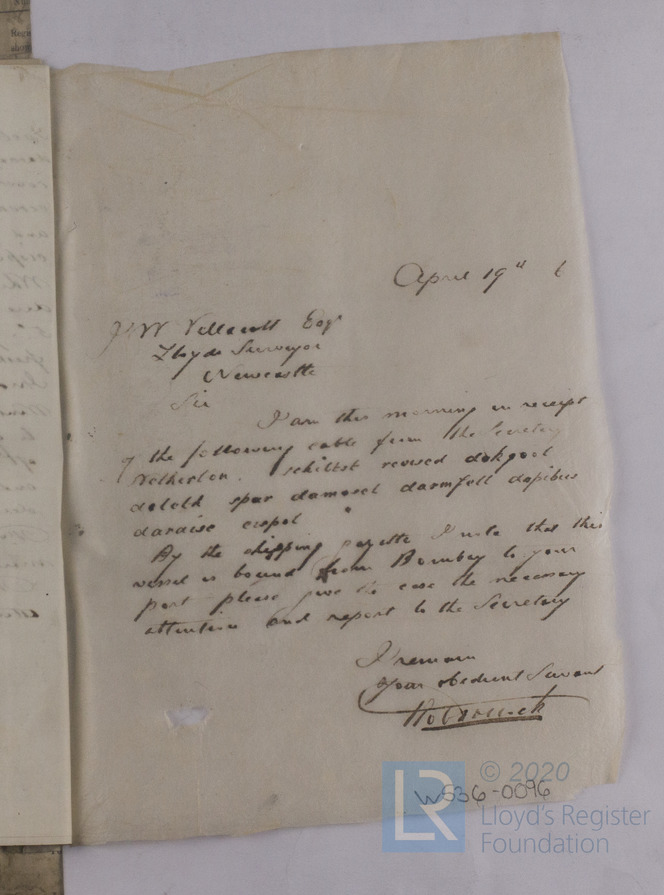 April 19th 6
J W Vellacott Esqr
Lloyds Surveyor
Newcastle
Sir
I am this morning in receipt
of the following cable from the Secretary
Netherton. schittst revised dokgoot
doteld spar damosel darmfell dapibus
daraise cespot "
By the shipping gazette I note that this
vessel is bound from Bombay to your
port please give the case the necessary
attention and report to the Secretary
I remain
Your obedient Servant
W536-0096
LR
© 2020
Lloyd's Register
Foundation